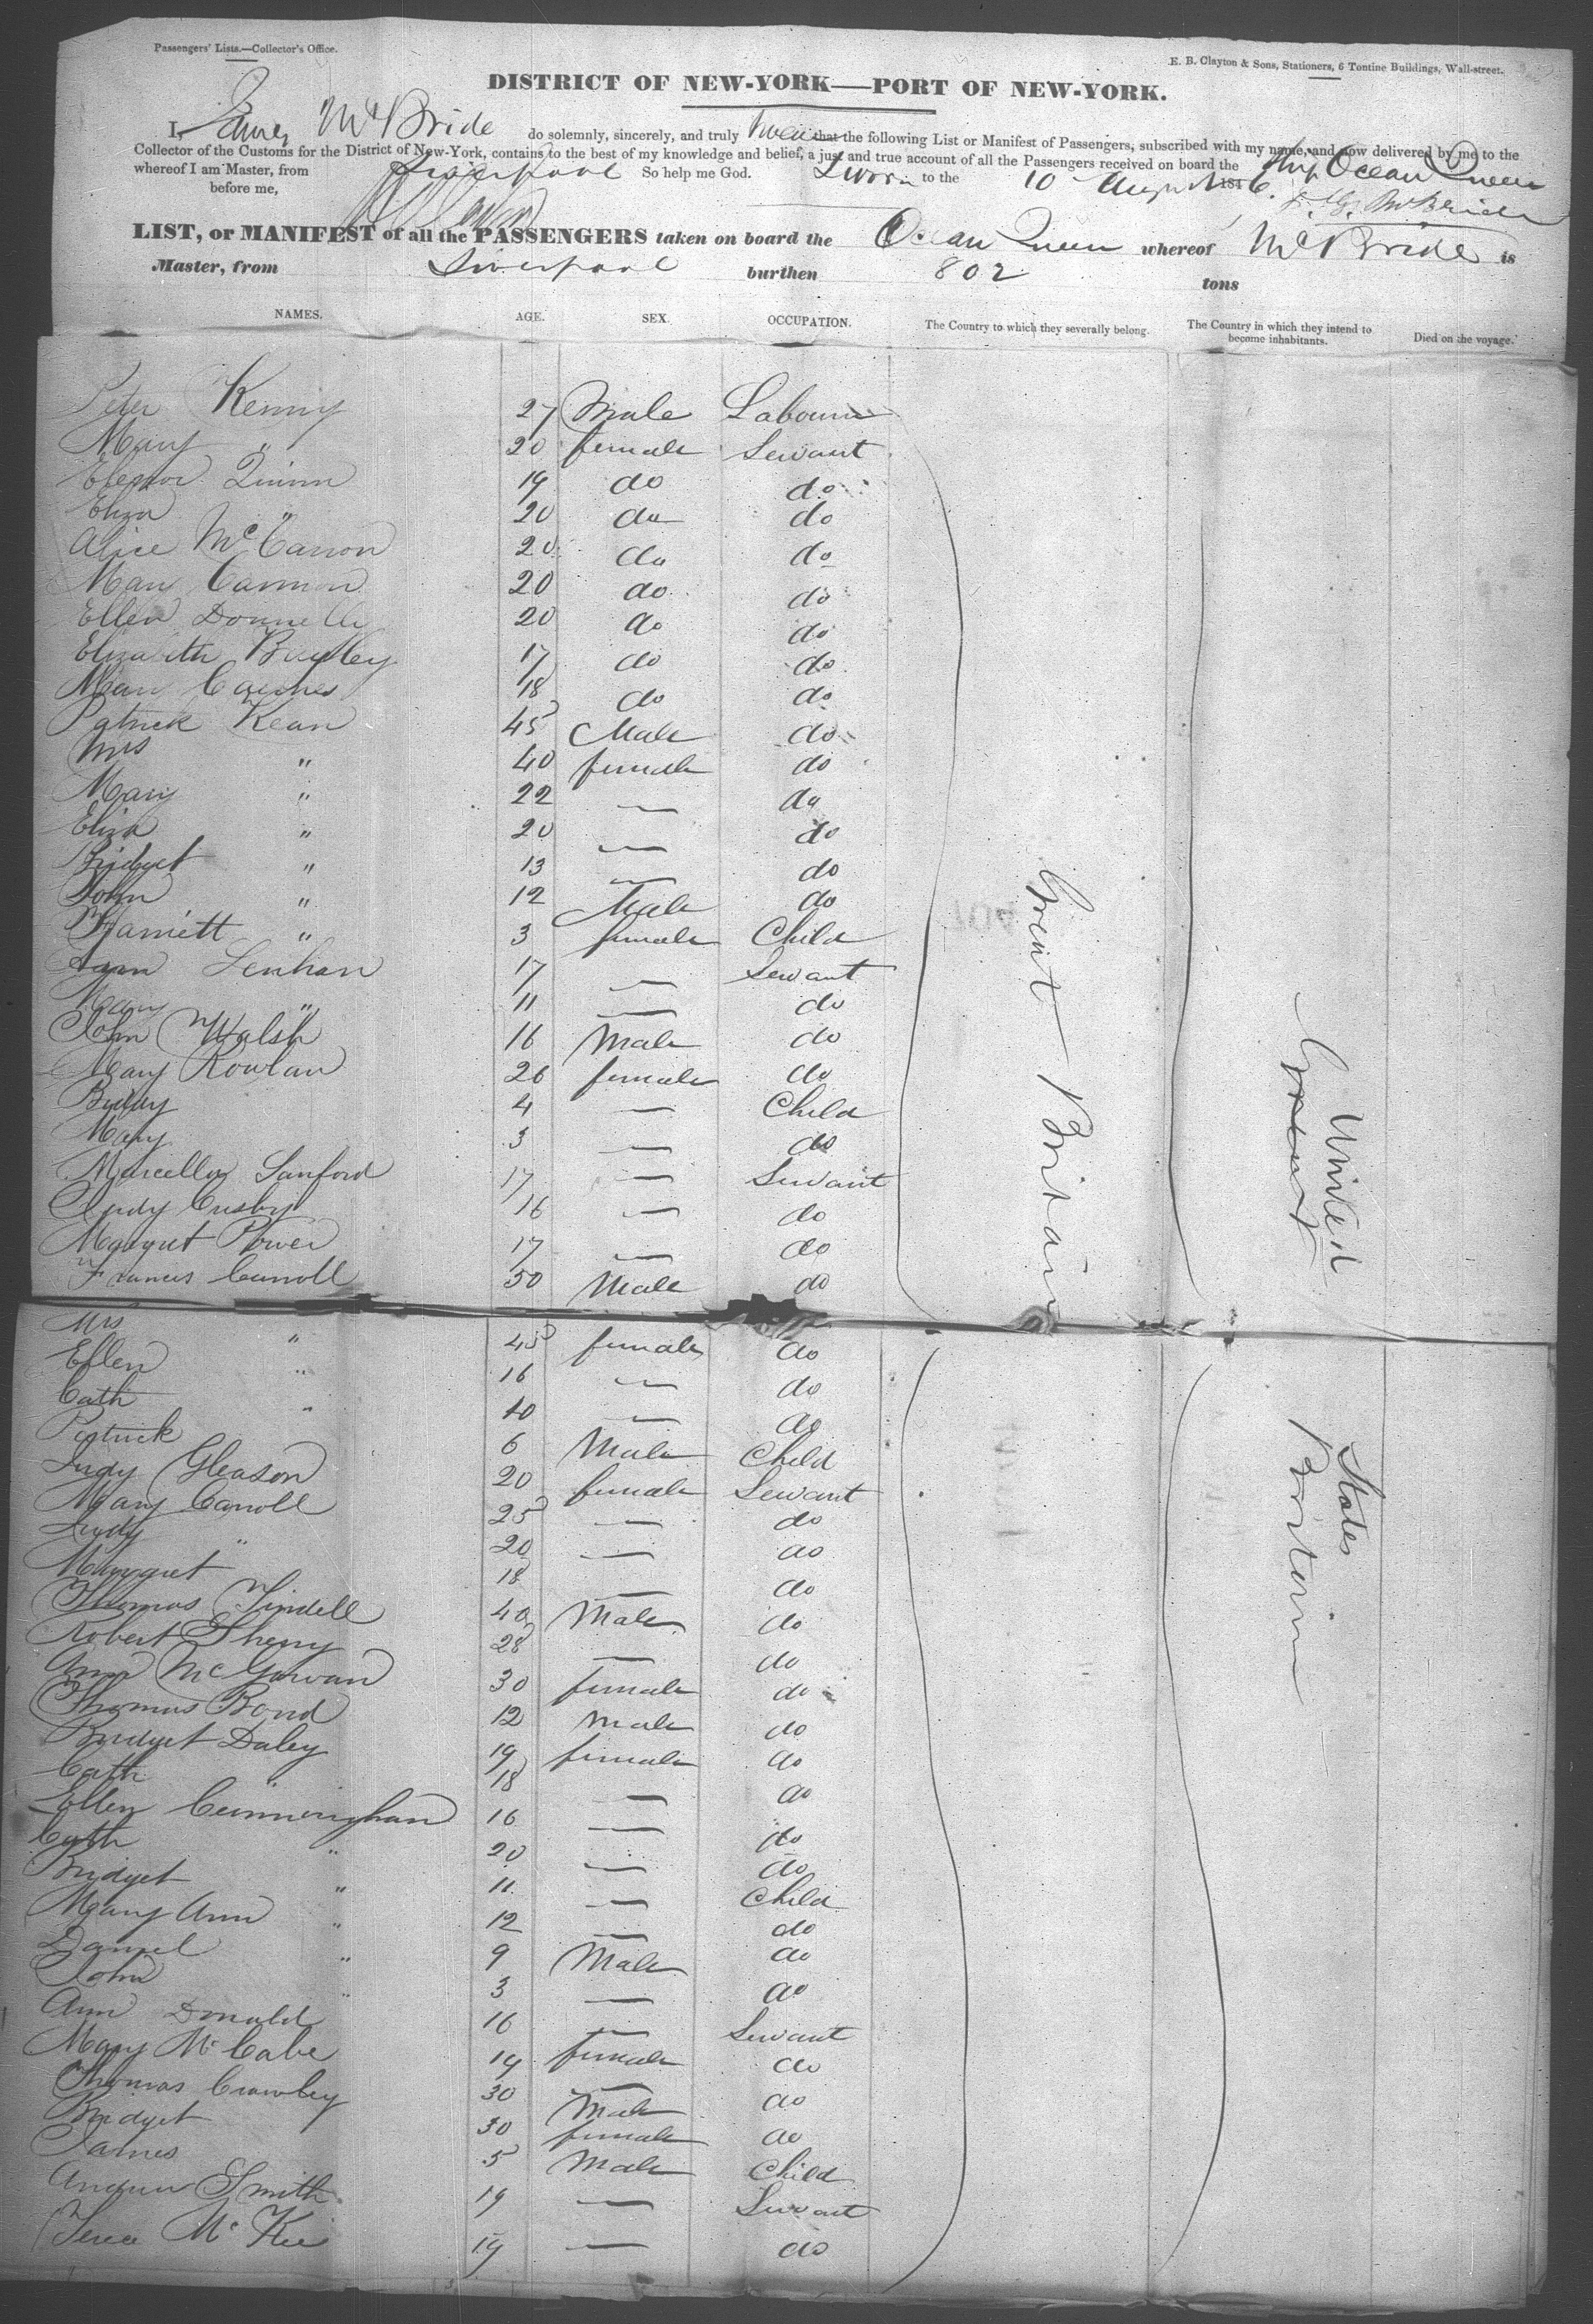 Passengers' Lists.—Collector's Office.
E. B. Clayton & Sons, Stationers, 6 Tontine Buildings, Wall-street.
DISTRICT OF NEW-YORK—PORT OF NEW-YORK.
I, James McBride do solemnly, sincerely, and truly swear that the following List or Manifest of Passengers, subscribed with my name, and now delivered by me to the
Collector of the Customs for the District of New-York, contains to the best of my knowledge and belief, a just and true account of all the Passengers received on board the Ship Ocean Queen
whereof I am Master, from Liverpool So help me God. Sworn to the 10 August 1846.
before me, McBride
LIST, or MANIFEST of all the PASSENGERS taken on board the Ocean Queen whereof McBride is
Master, from Liverpool burthen 802 tons
NAMES. AGE. SEX. OCCUPATION. The Country to which they severally belong. The Country in which they intend to become inhabitants. Died on the voyage.
Peter Kenny 27 Male Labourer
Mary " 20 female Servant
Eleanor Quinn 19 do do
Eliza " 20 do do
Alice McCarron 20 do do
Mary Cannon 20 do do
Ellen Donnelly 20 do do
Elizabeth Bayley 17 do do
Mary Caynes 18 do do
Patrick Kean 45 Male do
Mrs " 40 female do
Mary " 22 — do
Eliza " 20 — do
Bridget " 13 — do
John " 12 Male do
Harriett " 3 female Child
Ann Lenhan 17 — Servant
Mary " 11 — do
John Walsh 16 Male do
Mary Rowlan 26 female do
Biddy 4 — Child
Mary 3 — do
Marcella Sanford 17 — Servant
Judy Cusby 16 — do
Margret Power 17 — do
Francis Carroll 50 Male do
Mrs " 45 female do
Ellen " 16 — do
Cath " 10 — do
Patrick 6 Male Child
Judy Gleason 20 female Servant
Mary Carroll 25 — do
Judy " 20 — do
Margret 18 — do
Thomas Tindell 40 Male do
Robert Sherry 28 — do
Ann McGowan 30 female do
Thomas Bond 12 Male do
Bridget Daley 19 female do
Cath " 18 — do
Ellen Cunningham 16 — do
Cath " 20 — do
Bridget " 11 — Child
Mary Ann " 12 — do
Daniel " 9 Male do
John " 3 — do
Ann Donald 16 — Servant
Mary McCabe 19 female do
Thomas Crawley 30 Male do
Bridget 30 female do
James 5 Male Child
Andrew Smith 19 — Servant
McKee 19 — do
Great Britain
United States
Great Britain